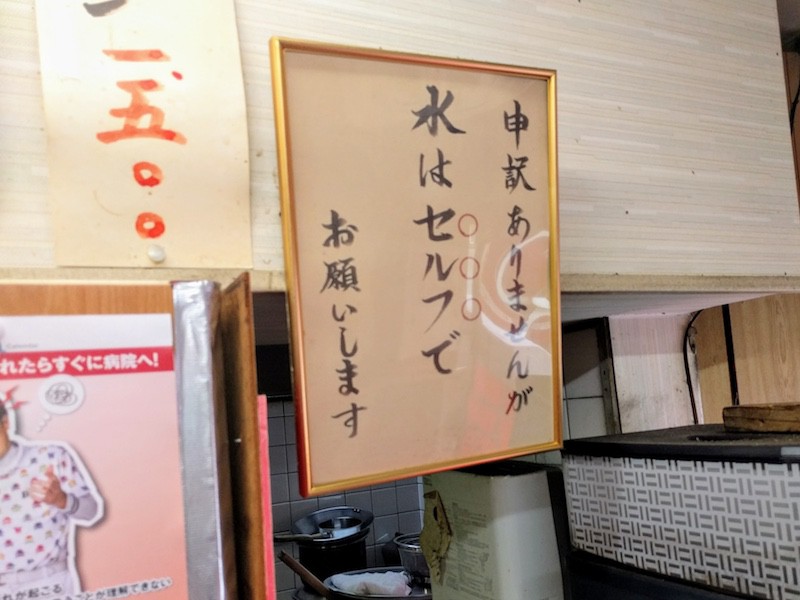 申訳ありませんが
水はセルフで
お願いします
一五〇〇
れたらすぐに病院へ!
が起こる
ことが理解できない